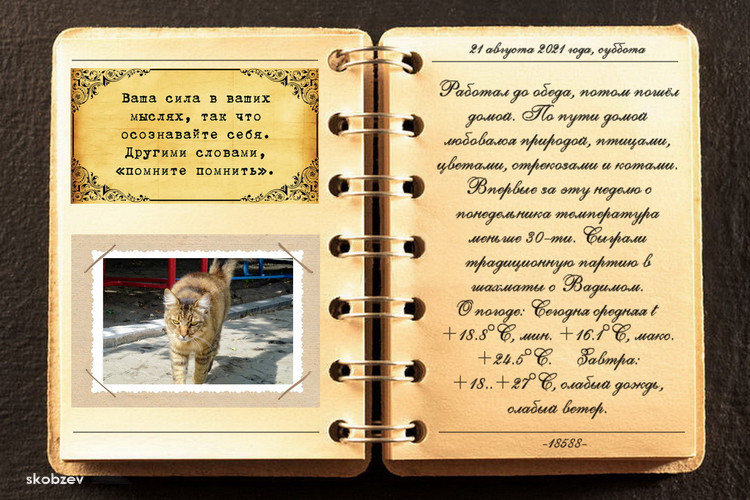 Ваша сила в ваших
мыслях, так что
осознавайте себя.
Другими словами,
«помните помнить».
21 августа 2021 года, суббота
Работал до обеда, потом пошёл
домой. По пути домой
любовался природой, птицами,
цветами, стрекозами и котами.
Впервые за эту неделю с
понедельника температура
меньше 30-ти. Сыграли
традиционную партию в
шахматы с Вадимом.
О погоде: Сегодня средняя t
+18.8°C, мин. +16.1°C, макс.
+24.5°C. Завтра:
+18..+27°C, слабый дождь,
слабый ветер.
-18588-
skobzev